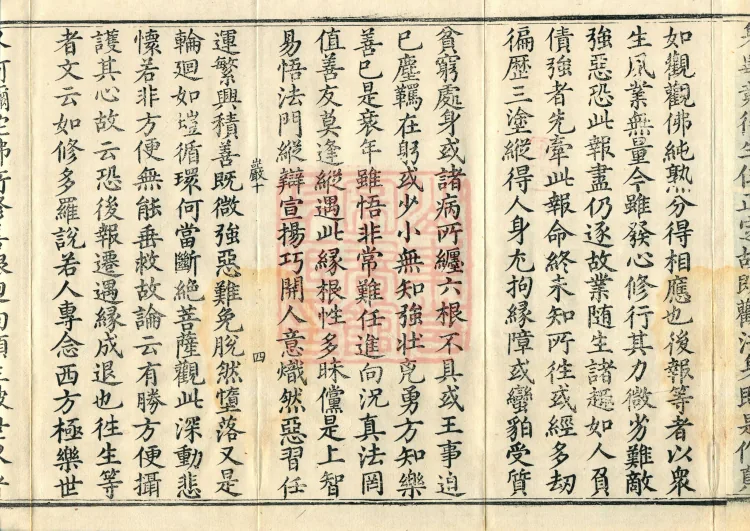 如觀觀佛純熟分得相應也後報等者以衆
生風業無量今雖發心修行其力微劣難敵
強惡恐此報盡仍逐故業随生諸趣如人負
債強者先牽此報命終未知所徃或經多刧
徧歷三塗縱得人身尢拘緣障或蠻貊受質
貧窮處身或諸病所纏六根不具或王事迫
已塵羈在躬或少小無知強壯兇勇方知樂
善已是衰年雖悟非常難任進向況真法罔
值善友莫逢縱遇此縁根性多昧儻是上智
易悟法門縱辯宣揚巧開人意熾然惡習任
嚴十
四
運繁興積善既微強惡難免脫然墮落又是
輪廻如塏循環何當斷絕菩薩觀此深動悲
懷若非方便無能垂救故論云有勝方便攝
護其心故云恐後報遷遇縁成退也徃生等
者文云如修多羅說若人專念西方極樂世